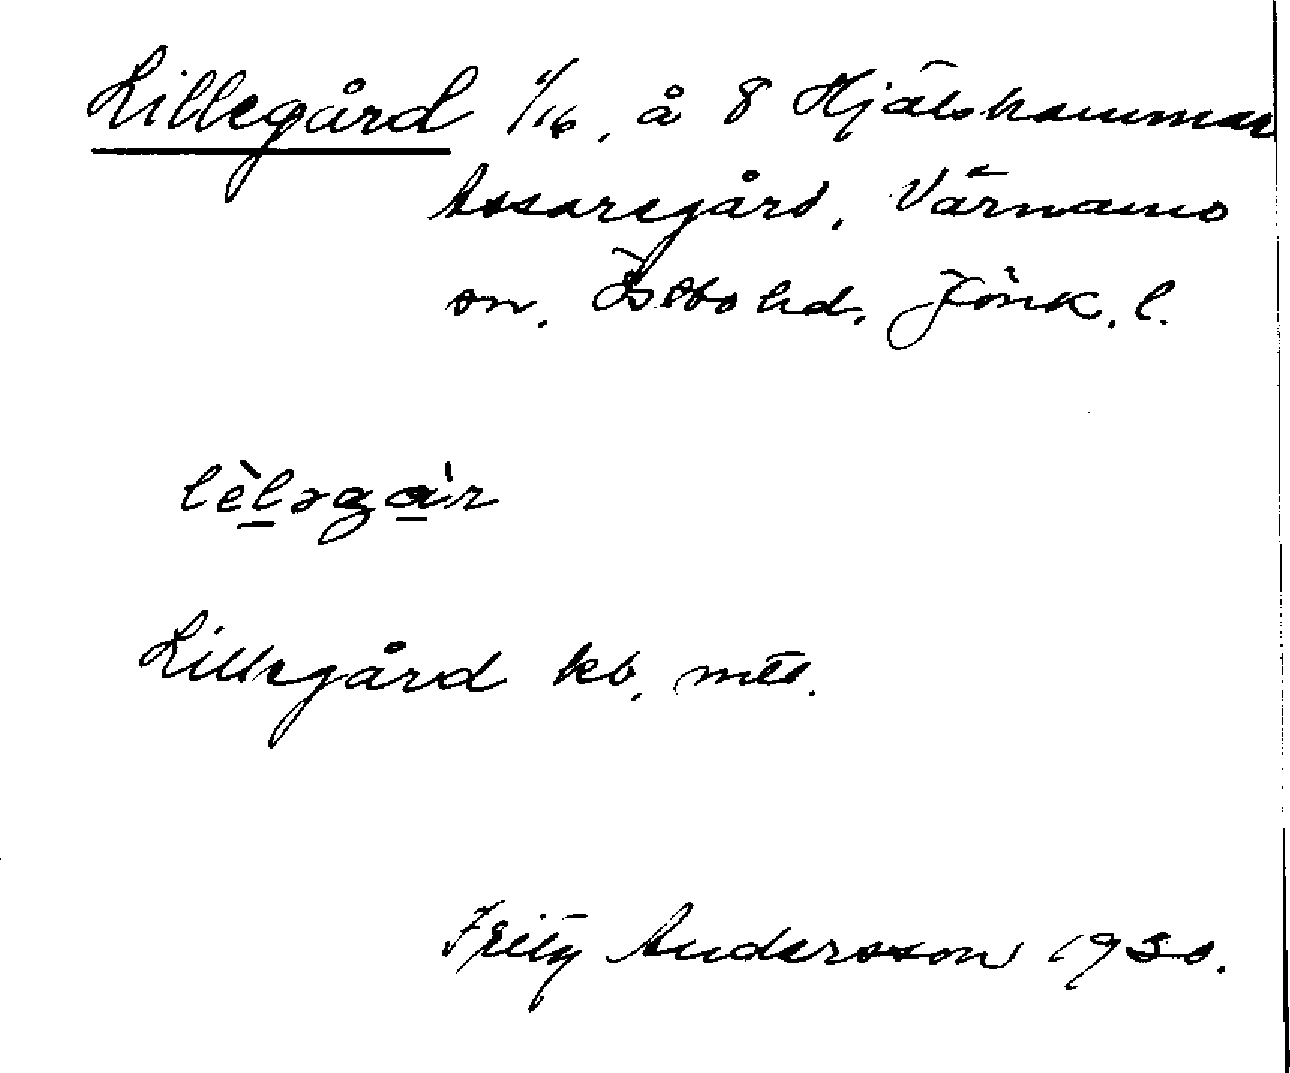 Lillegård 1/16, å 8 Hjälshammar
Assaregård, Värnamo
sn. Östbo hd. Jönk. l.
lèləga'r
Lillegård kb. mtl.
Fritz Andersson 1930.